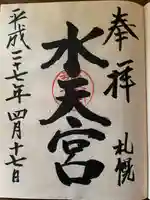 奉拝
札幌
水天宮
平成二七年四月十七日